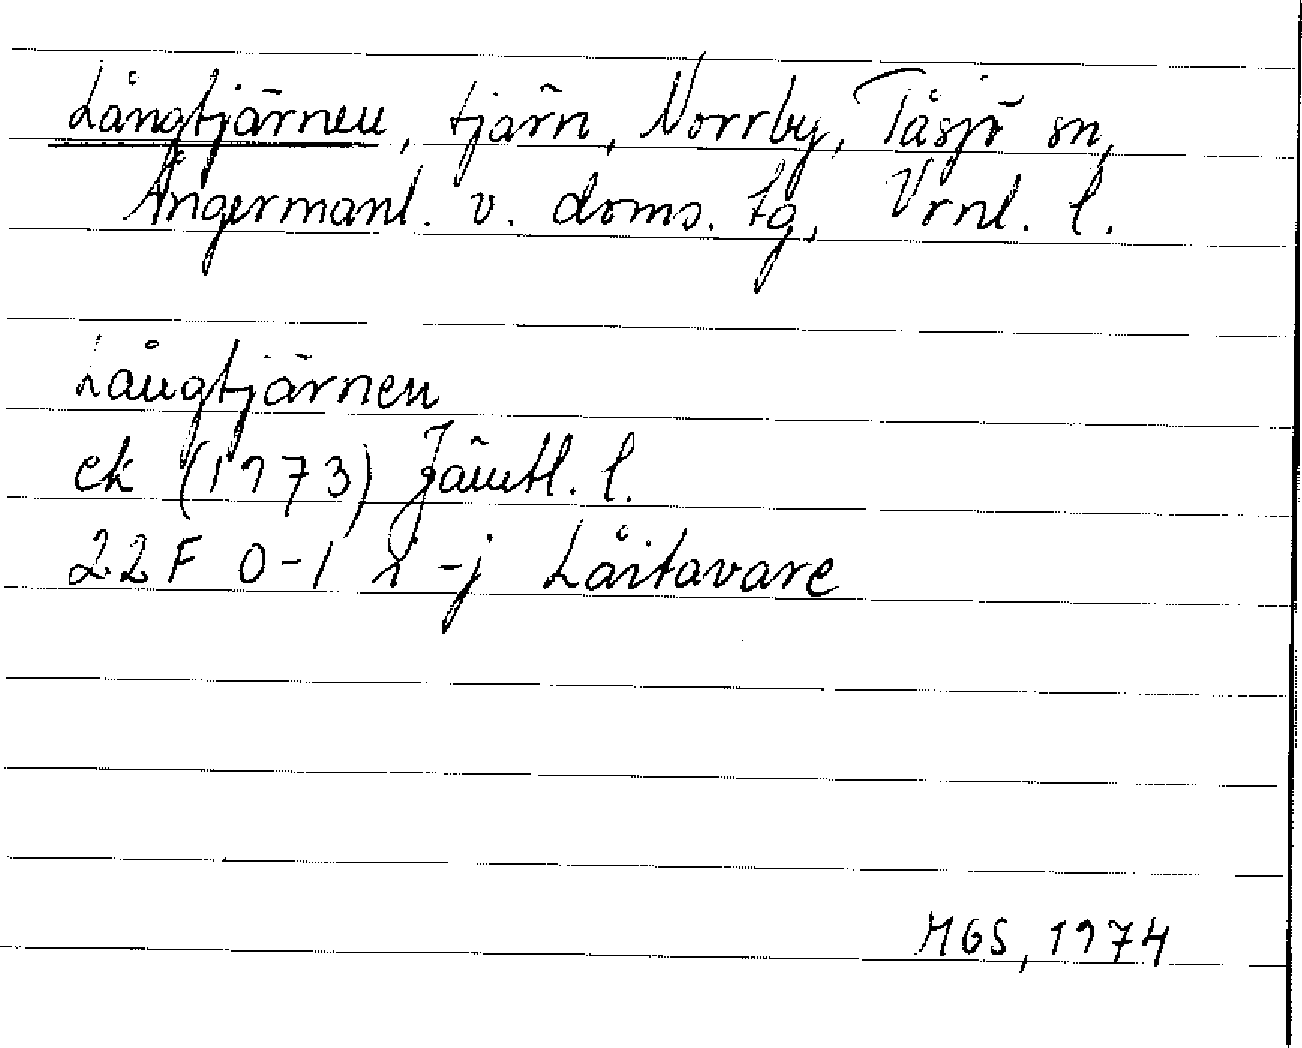 Långtjärnen, tjärn, Norrby, Tåsjö sn,
Ångermanl. v. doms. tg, Vrnl. l.
Långtjärnen
ek (1973) Jämtl. l.
22F 0-1 i-j Låitavare
MGS, 1974